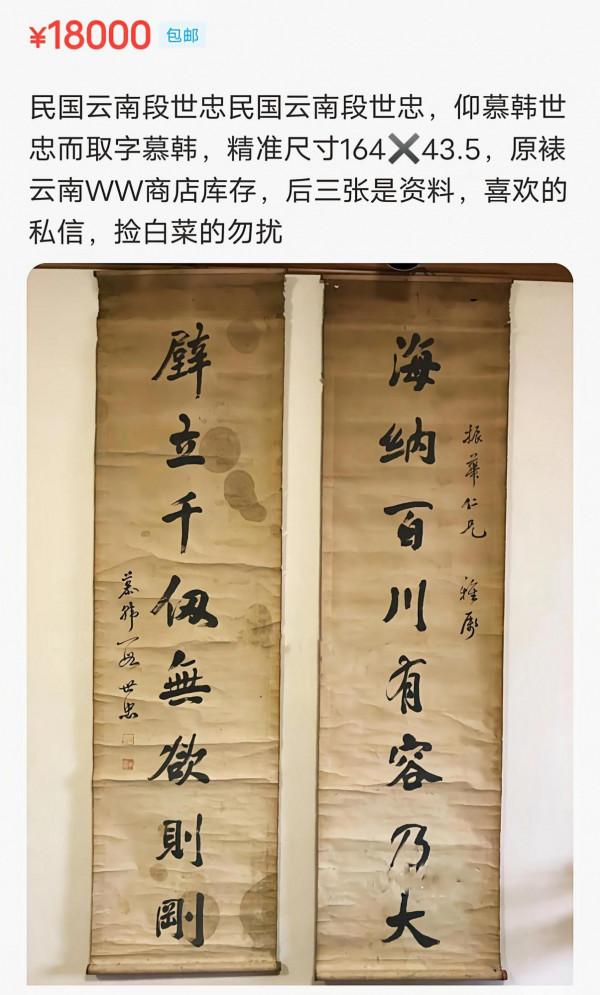 ¥18000 包邮
民国云南段世忠民国云南段世忠，仰慕韩世
忠而取字慕韩，精准尺寸164✖️43.5，原裱
云南WW商店库存，后三张是资料，喜欢的
私信，捡白菜的勿扰
振華仁兄 雅屬
海納百川有容乃大
壁立千仞無欲則剛
慕韓段世忠